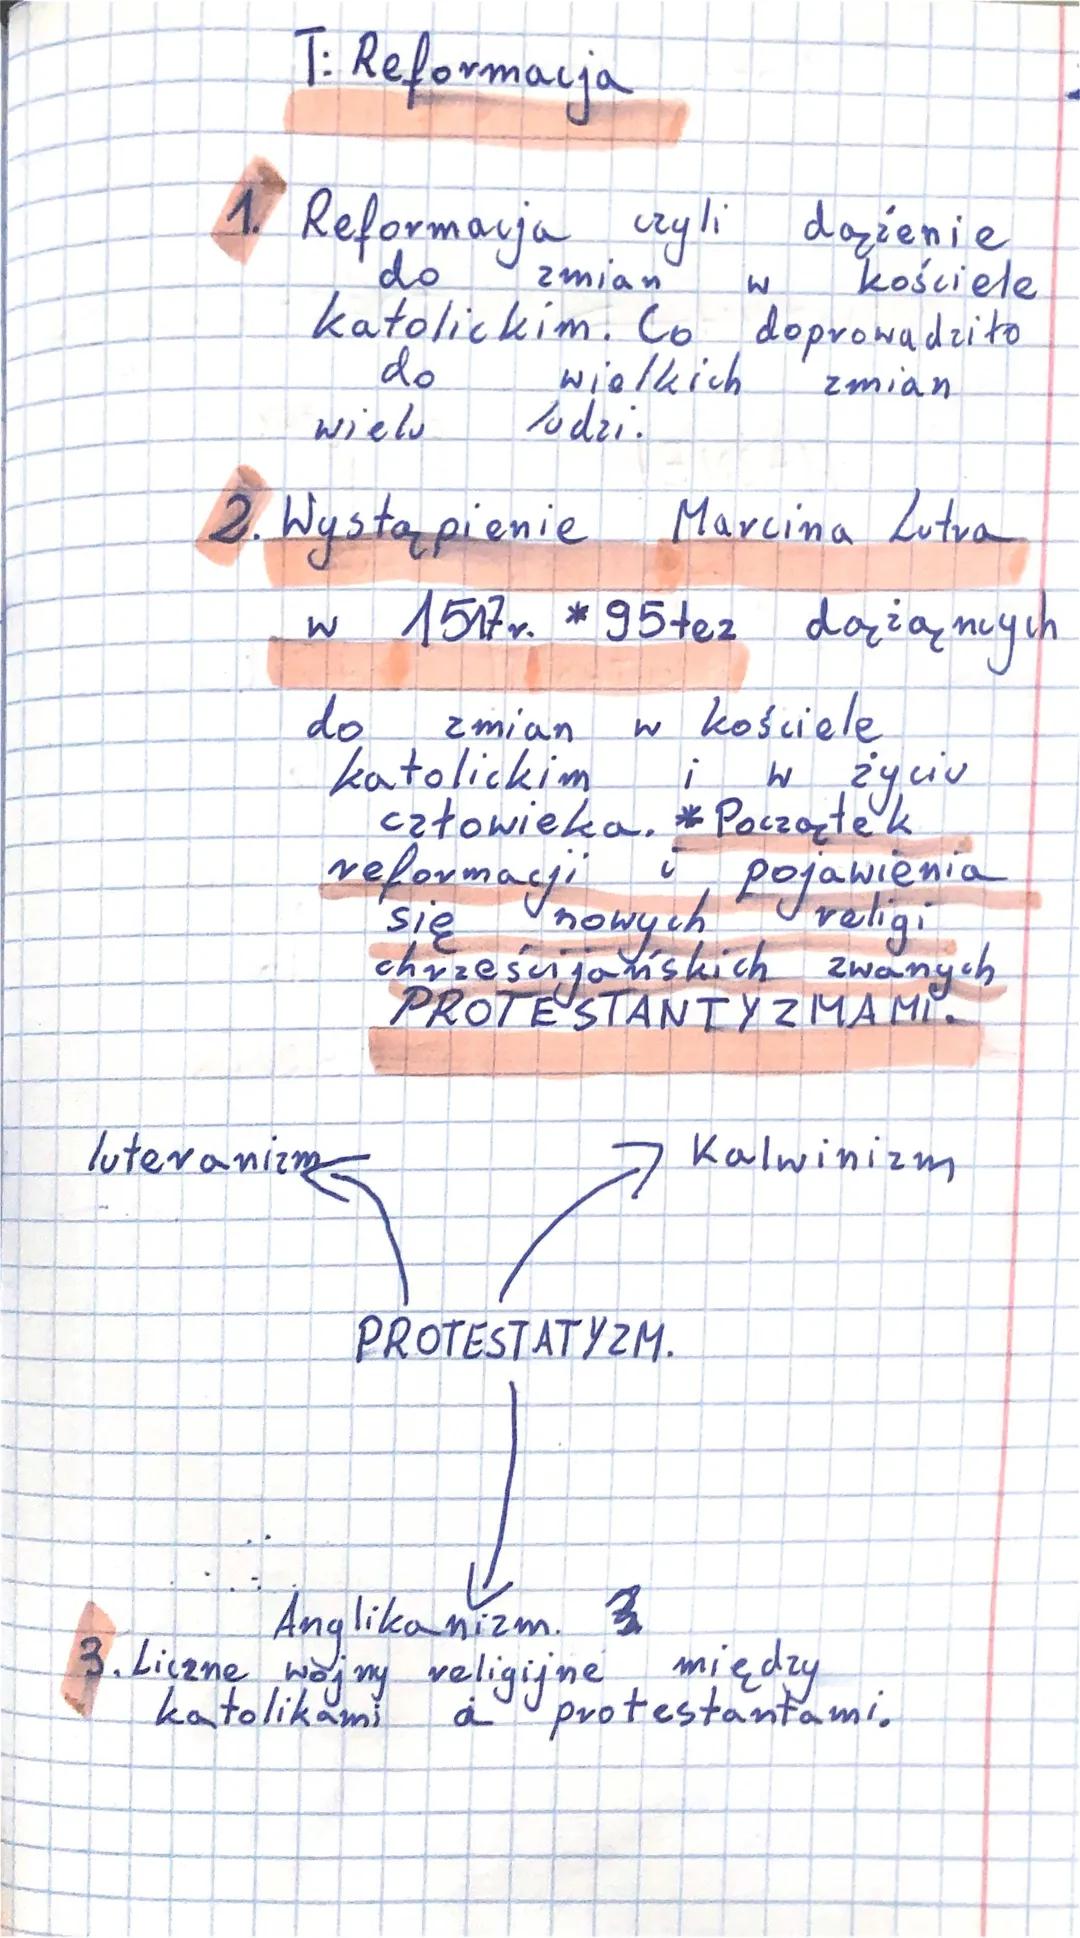 T: Reformacja
1. Reformacja czyli dążenie
do zmian w kościele
katolickim. Co doprowadziło
do wielkich zmian
wielu ludzi.
2. Wystąpienie Marcina Lutra
w 1517r. *95tez dążąncych
do zmian w kościele
katolickim i w życiu
człowieka. *Początek
reformacji i pojawienia
się nowych religi
chrześcijańskich zwanych
PROTESTANTYZMAMI.
luteranizm Kalwinizm
PROTESTATYZM.
Anglikanizm.
3. Liczne wojny religijne między
katolikami a protestantami.